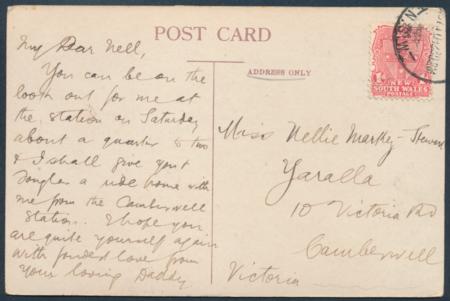 POST CARD
My Dear Nell,
You can be on the
look out for me at
the station on Saturday
about a quarter to two
& I shall give you &
Douglas a ride home with
me from the Camberwell
Station. I hope you
are quite yourself again
with fondest love from
Your loving Daddy
ADDRESS ONLY
Miss Nellie
Yaralla
10 Victoria Rd
Camberwell
Victoria
NEW
SOUTH WALES
POSTAGE